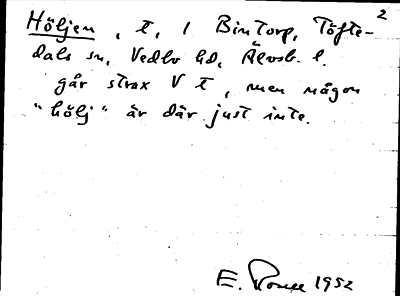 2
Höljen, t, 1 Bintorp, Töfte-
dals sn, Vedbo hd, Älvsb. l.
går strax V t, men någon
"hölj" är där just inte.
E. 1952